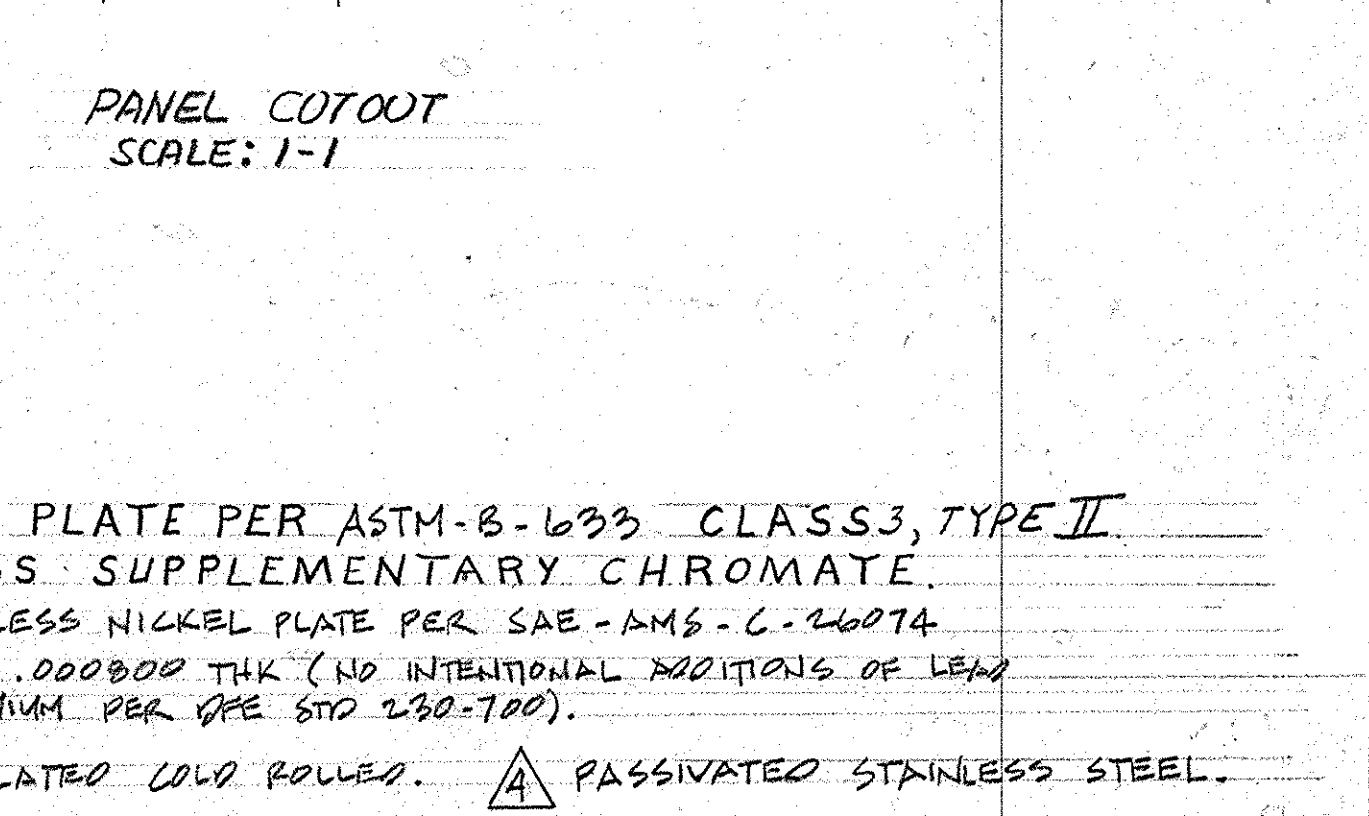 PANEL CUTOUT
SCALE: 1-1
PLATE PER ASTM-B-633 CLASS 3, TYPE II
S SUPPLEMENTARY CHROMATE.
LESS NICKEL PLATE PER SAE-AMS-C-26074
.000800 THK (NO INTENTIONAL ADDITIONS OF LEAD
MIUM PER DFE STD 230-700).
LATED COLD ROLLED. 4 PASSIVATED STAINLESS STEEL.